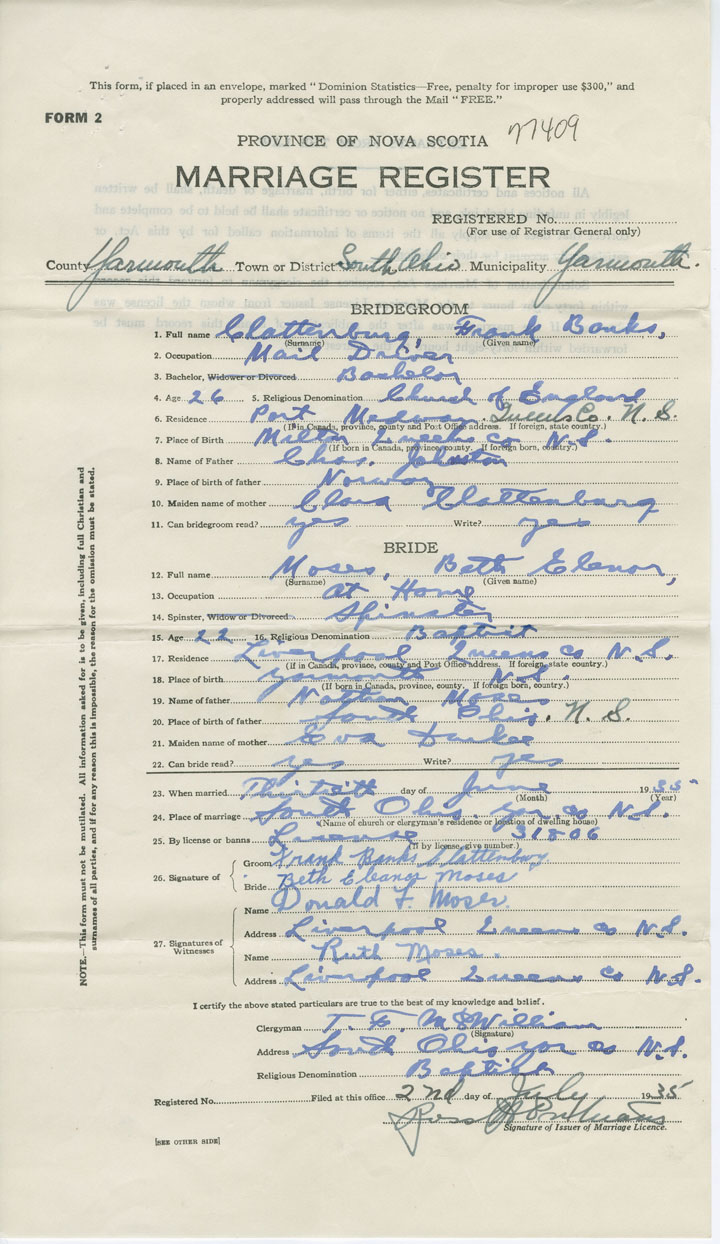 This form, if placed in an envelope, marked "Dominion Statistics—Free, penalty for improper use $300," and
properly addressed will pass through the Mail "FREE."
FORM 2
77409
PROVINCE OF NOVA SCOTIA
MARRIAGE REGISTER
REGISTERED No.
(For use of Registrar General only)
County Yarmouth Town or District South Ohio Municipality Yarmouth.
BRIDEGROOM
1. Full name Chattenburg, Frank Banks,
(Surname) (Given name)
2. Occupation Mail Driver
3. Bachelor, Widower or Divorced Bachelor
4. Age 26 5. Religious Denomination Church of England
6. Residence Port Medway Queens Co. N.S.
(If in Canada, province, county and Post Office address. If foreign, state country.)
7. Place of Birth Milton Queens Co N.S.
(If born in Canada, province, county. If foreign born, country.)
8. Name of Father Chas. Johnston
9. Place of birth of father Norway
10. Maiden name of mother Clara Clattenburg
11. Can bridegroom read? yes Write? yes
BRIDE
12. Full name Moses, Beth Elenor,
(Surname) (Given name)
13. Occupation At Home
14. Spinster, Widow or Divorced Spinster
15. Age 22 16. Religious Denomination Baptist
17. Residence Liverpool Queens Co N.S.
(If in Canada, province, county and Post Office address. If foreign, state country.)
18. Place of birth Yarmouth N.S.
(If born in Canada, province, county. If foreign born, country.)
19. Name of father Nathan Moses
20. Place of birth of father South Ohio, N.S.
21. Maiden name of mother Eva Durkee
22. Can bride read? yes Write? yes
23. When married Thirtieth day of June 1935
(Month) (Year)
24. Place of marriage South Ohio, Yar. Co N.S.
(Name of church or clergyman's residence or location of dwelling house)
25. By license or banns License 31806
(If by license, give number.)
26. Signature of
Groom Frank Banks Clattenburg
Bride Beth Eleanor Moses
27. Signatures of Witnesses
Name Donald F. Moser.
Address Liverpool Queens Co N.S.
Name Ruth Moses.
Address Liverpool Queens Co N.S.
I certify the above stated particulars are true to the best of my knowledge and belief.
Clergyman T. F. McWilliam
(Signature)
Address South Ohio Yar Co N.S.
Religious Denomination Baptist
Registered No. Filed at this office 2nd day of July 1935
Signature of Issuer of Marriage Licence.
[SEE OTHER SIDE]
NOTE.—This form must not be mutilated. All information asked for is to be given, including full Christian and
surnames of all parties, and if for any reason this is impossible, the reason for the omission must be stated.